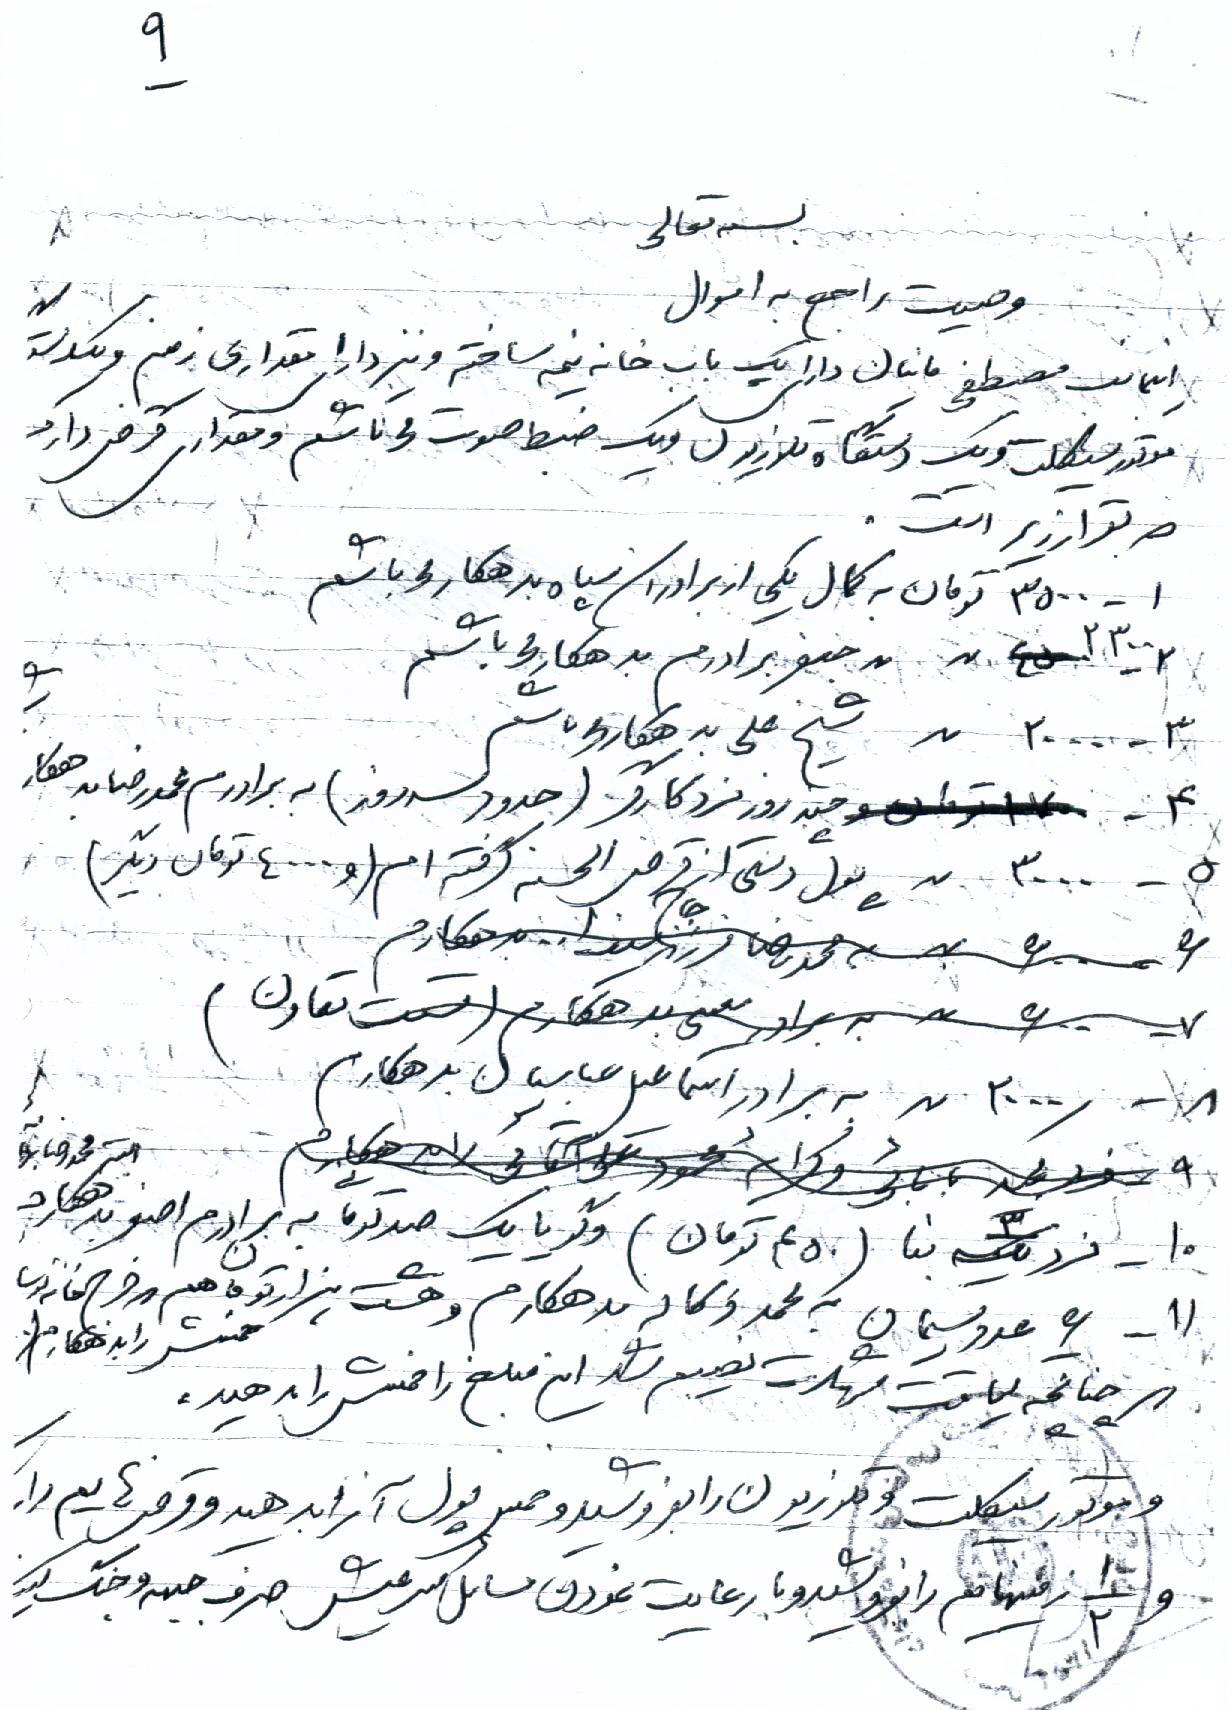 ۹
بسمه تعالی
وصیت راجع به اموال
اینجانب مصطفی مانیان دارای یک باب خانه نیمه ساخته و نیز دارای مقداری زمین و یکدستگاه
موتور سیکلت و یک دستگاه تلوزیون و یک ضبط صوت می باشم و مقداری قرض دارم که
به قرار زیر است .
۱ - ۳۵۰۰ تومان به کمال یکی از برادران سپاه بدهکار می باشم
۲ - ۲۳۰۰ 〃 〃 جعفر برادرم بدهکار می باشم
۳ - ۲۰۰۰۰ 〃 شیخ علی بدهکار می باشم
۴ - و چند روز مزد کارگر (حدود سه روز) به برادرم محمدرضا بدهکار
۵ - ۳۰۰۰ 〃 پول دستی از قرض الحسنه گرفته ام (و ٤۰۰۰ تومان دیگر)
۶ - ۶۰۰۰ 〃 به محمدرضا بدهکارم
۷ - ۶۰۰۰ 〃 به برادر معینی بدهکارم (قسمت تعاون)
۸ - ۲۰۰۰ 〃 به برادر اسماعیل عباسیان بدهکارم
۹ محمود بدهکارم
۱۰ - مزد ۳ بنا (۴۵۰ تومان) و گویا یک صد تومان به برادرم اصغر بدهکارم
۱۱ - ۶ عدد سیمان به محمد بدهکارم و هشت هزار تومان هم خرج خانه
خمسش را بدهکارم
چنانچه لیاقت شهادت نصیبم شد این مبلغ را خمسش را بدهید .
و موتور سیکلت و تلوزیون را بفروشید و خمس پول آنرا بدهید و قرض هایم را
و ۱/۲ زمینهایم را بفروشید و با رعایت نمودن مسایل شرعیش صرف جبهه و جنگ کنید